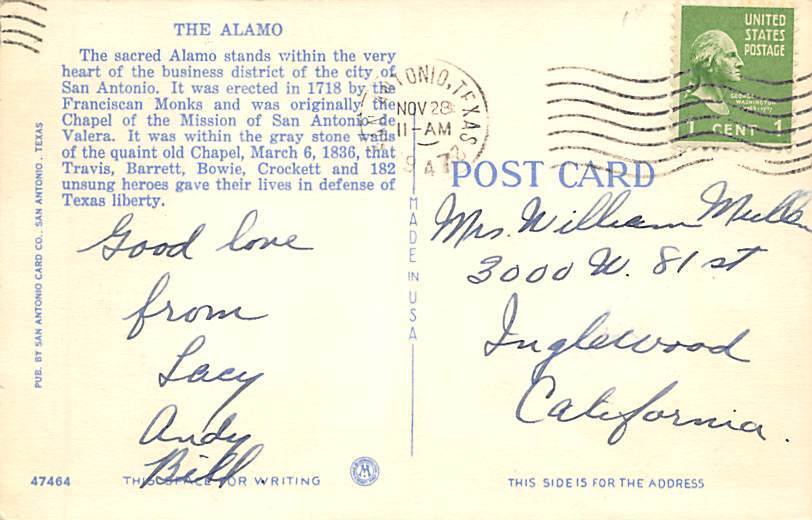 THE ALAMO
The sacred Alamo stands within the very
heart of the business district of the city of
San Antonio. It was erected in 1718 by the
Franciscan Monks and was originally the
Chapel of the Mission of San Antonio de
Valera. It was within the gray stone walls
of the quaint old Chapel, March 6, 1836, that
Travis, Barrett, Bowie, Crockett and 182
unsung heroes gave their lives in defense of
Texas liberty.
PUB. BY SAN ANTONIO CARD CO., SAN ANTONIO, TEXAS
Good love
from
Lacy
Andy
Bill.
47464
THIS SPACE FOR WRITING
MADE IN USA
SAN ANTONIO, TEXAS
NOV 28
11-AM
UNITED
STATES
POSTAGE
GEORGE
WASHINGTON
1 CENT 1
POST CARD
Mrs. William
3000 W. 81 st
Inglewood
California.
THIS SIDE IS FOR THE ADDRESS